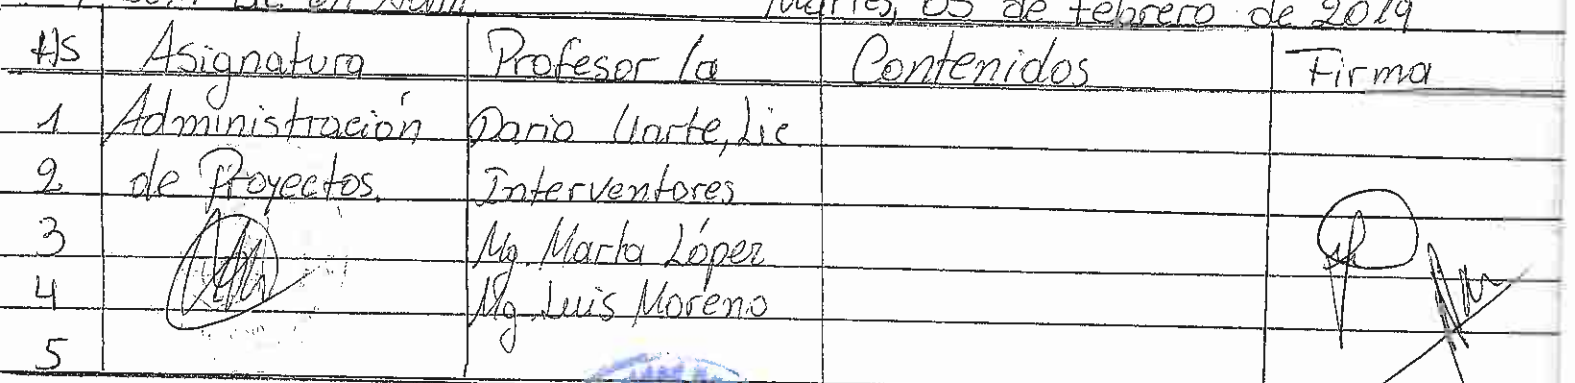 Martes, 05 de febrero de 2019
Hs Asignatura Profesor/a Contenidos Firma
1 Administración Dario Uarte, Lic
2 de Proyectos. Interventores
3 Mg. Marta López
4 Mg. Luis Moreno
5